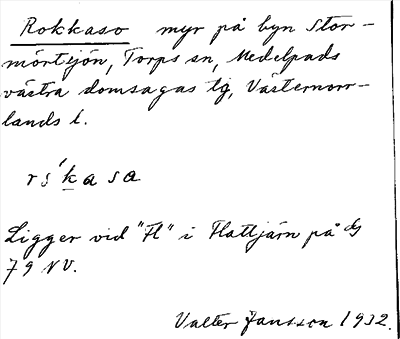 Rokkaso myr på byn Stor-
mörtsjön, Torps sn, Medelpads
västra domsagas tg, Västernorr-
lands l.
Ligger vid "Fl" i Flattjärn på dj
79 NV.
Valter Jansson 1932.